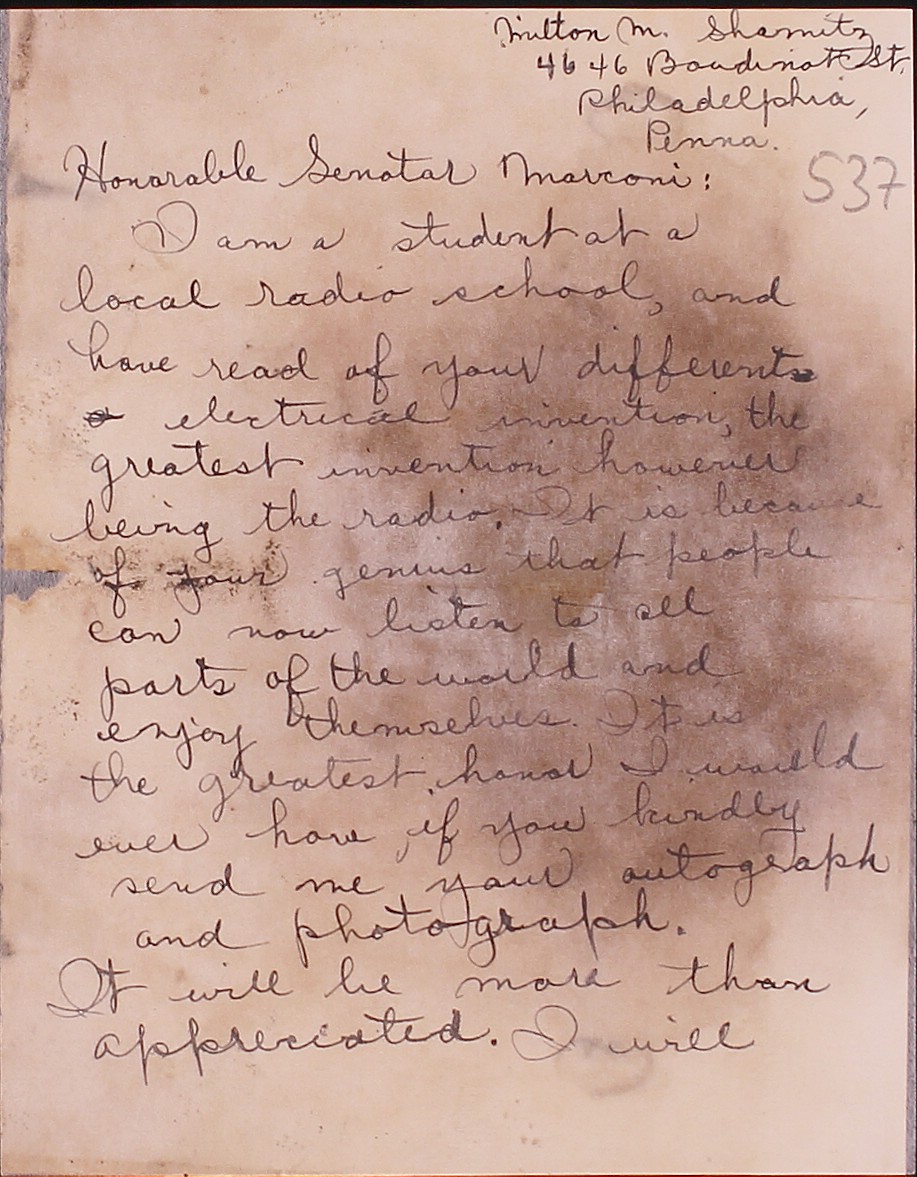 Milton M. Shamitz
4646 Boudinot St.
Philadelphia,
Penna.
537
Honorable Senator Marconi:
I am a student at a
local radio school, and
have read of your different
electrical invention, the
greatest invention however
being the radio. It is because
of your genius that people
can now listen to all
parts of the world and
enjoy themselves. It is
the greatest honor I would
ever have, if you kindly
send me your autograph
and photograph.
It will be more than
appreciated. I will